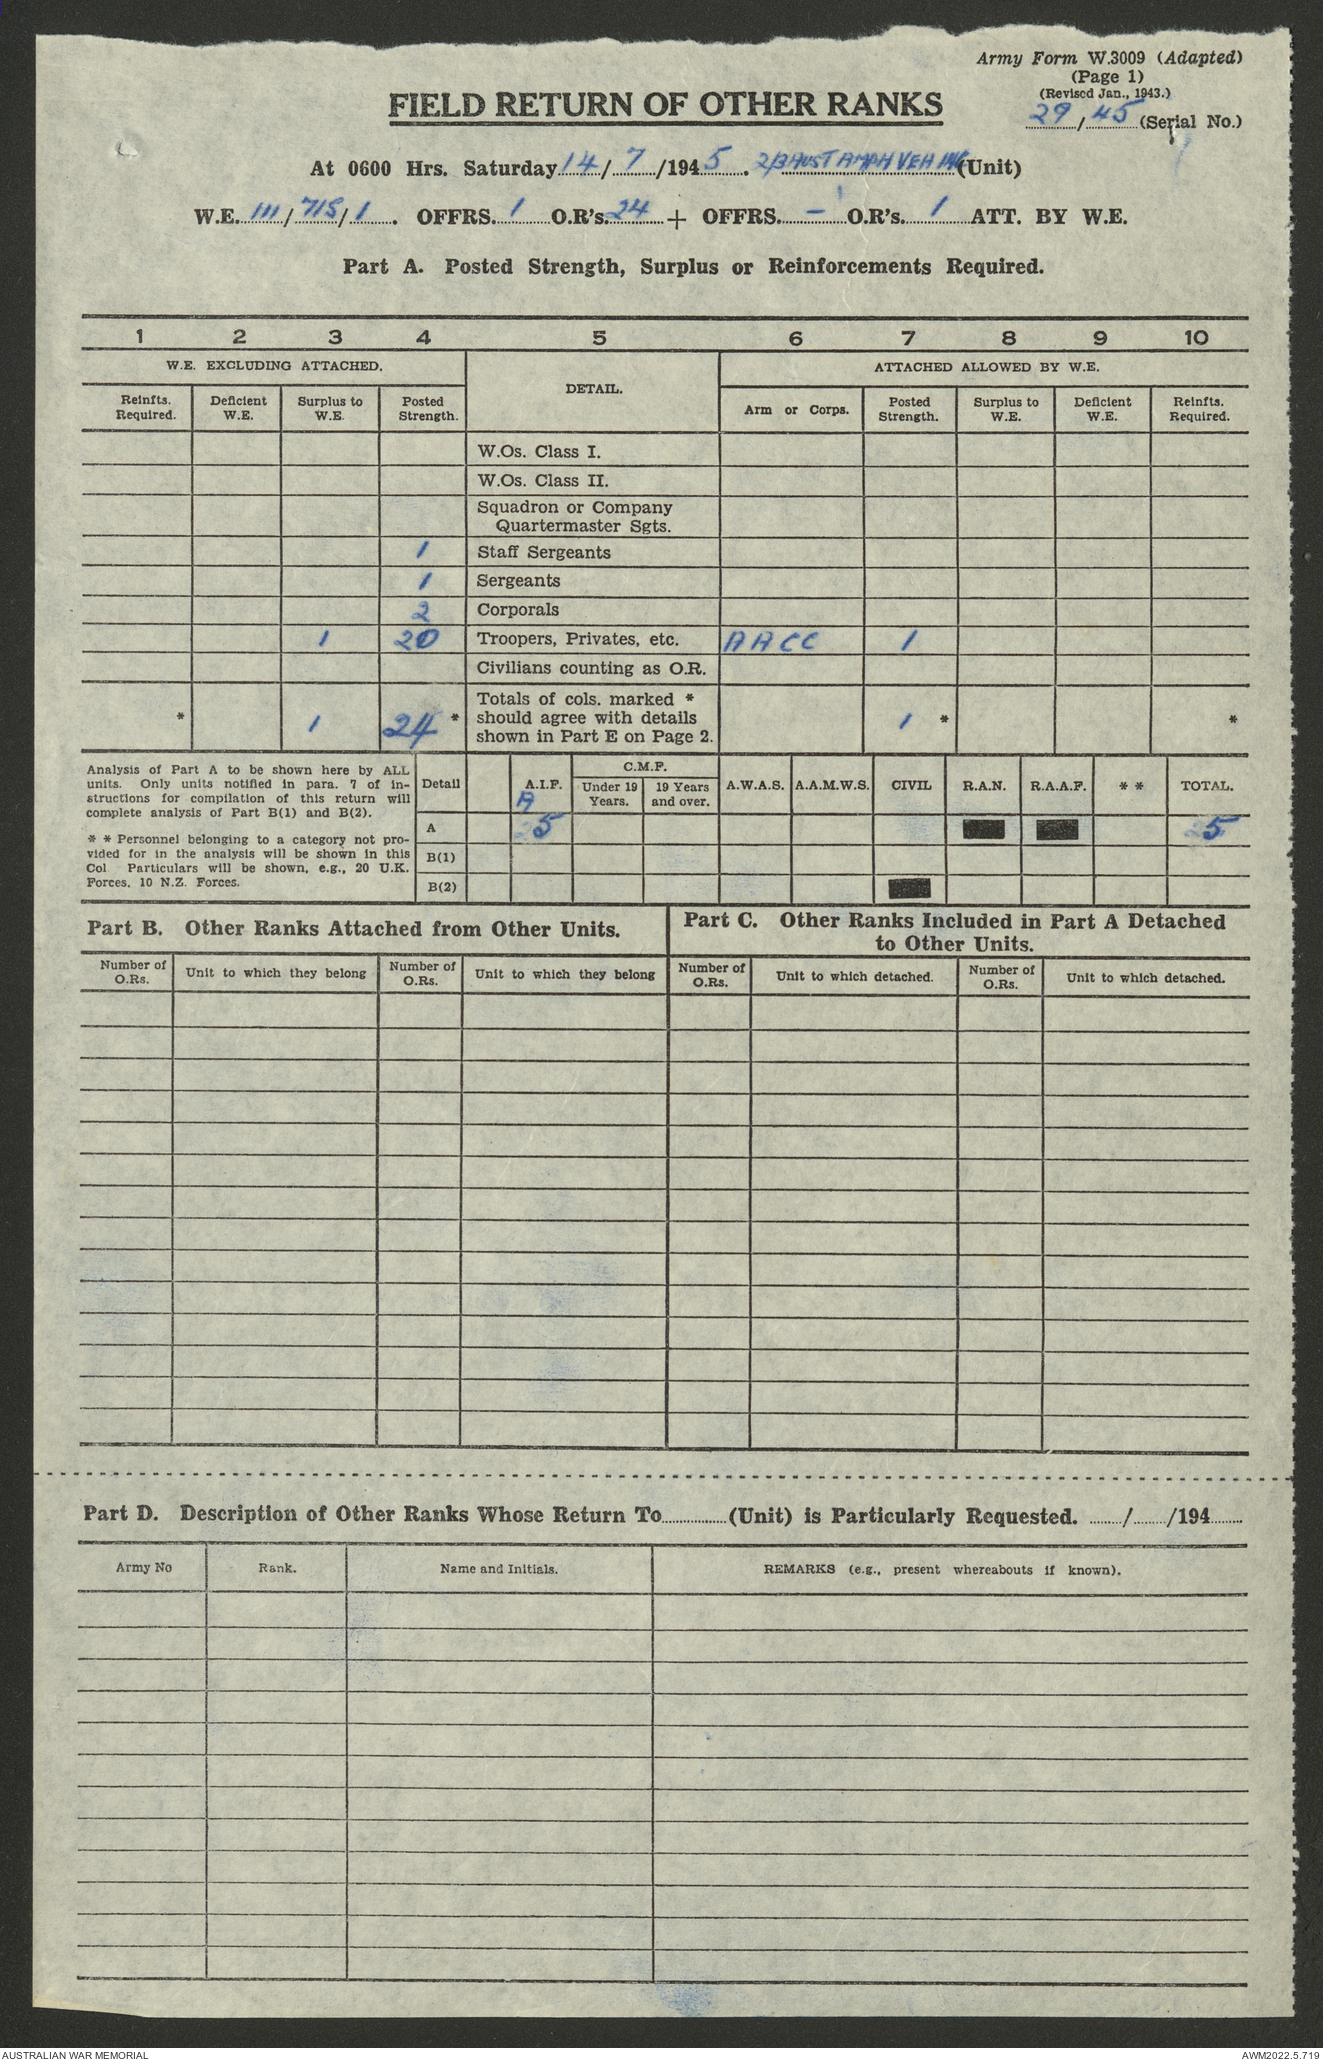 Army Form W.3009 (Adapted)
(Page 1)
(Revised Jan., 1943.)
29/45 (Serial No.)
FIELD RETURN OF OTHER RANKS
At 0600 Hrs. Saturday 14/7/1945. 2/3 AUST AMPH VEH (Unit)
W.E. 111/715/1. OFFRS. 1 O.R's. 24 + OFFRS. - O.R's. 1 ATT. BY W.E.
Part A. Posted Strength, Surplus or Reinforcements Required.
1 2 3 4 5 6 7 8 9 10
W.E. EXCLUDING ATTACHED. DETAIL. ATTACHED ALLOWED BY W.E.
Reinfts. Required. Deficient W.E. Surplus to W.E. Posted Strength. Arm or Corps. Posted Strength. Surplus to W.E. Deficient W.E. Reinfts. Required.
W.Os. Class I.
W.Os. Class II.
Squadron or Company
Quartermaster Sgts.
1 Staff Sergeants
1 Sergeants
2 Corporals
1 20 Troopers, Privates, etc. AACC 1
Civilians counting as O.R.
Totals of cols. marked *
* 1 24 * should agree with details 1 * *
shown in Part E on Page 2.
Analysis of Part A to be shown here by ALL
units. Only units notified in para. 7 of in-
structions for compilation of this return will
complete analysis of Part B(1) and B(2).
* * Personnel belonging to a category not pro-
vided for in the analysis will be shown in this
Col Particulars will be shown, e.g., 20 U.K.
Forces, 10 N.Z. Forces.
Detail A.I.F. C.M.F. Under 19 Years. 19 Years and over. A.W.A.S. A.A.M.W.S. CIVIL R.A.N. R.A.A.F. * * TOTAL.
A
A 25 25
B(1)
B(2)
Part B. Other Ranks Attached from Other Units.
Part C. Other Ranks Included in Part A Detached
to Other Units.
Number of O.Rs. Unit to which they belong Number of O.Rs. Unit to which they belong Number of O.Rs. Unit to which detached. Number of O.Rs. Unit to which detached.
Part D. Description of Other Ranks Whose Return To (Unit) is Particularly Requested. / /194
Army No Rank. Name and Initials. REMARKS (e.g., present whereabouts if known).
AUSTRALIAN WAR MEMORIAL AWM2022.5.719